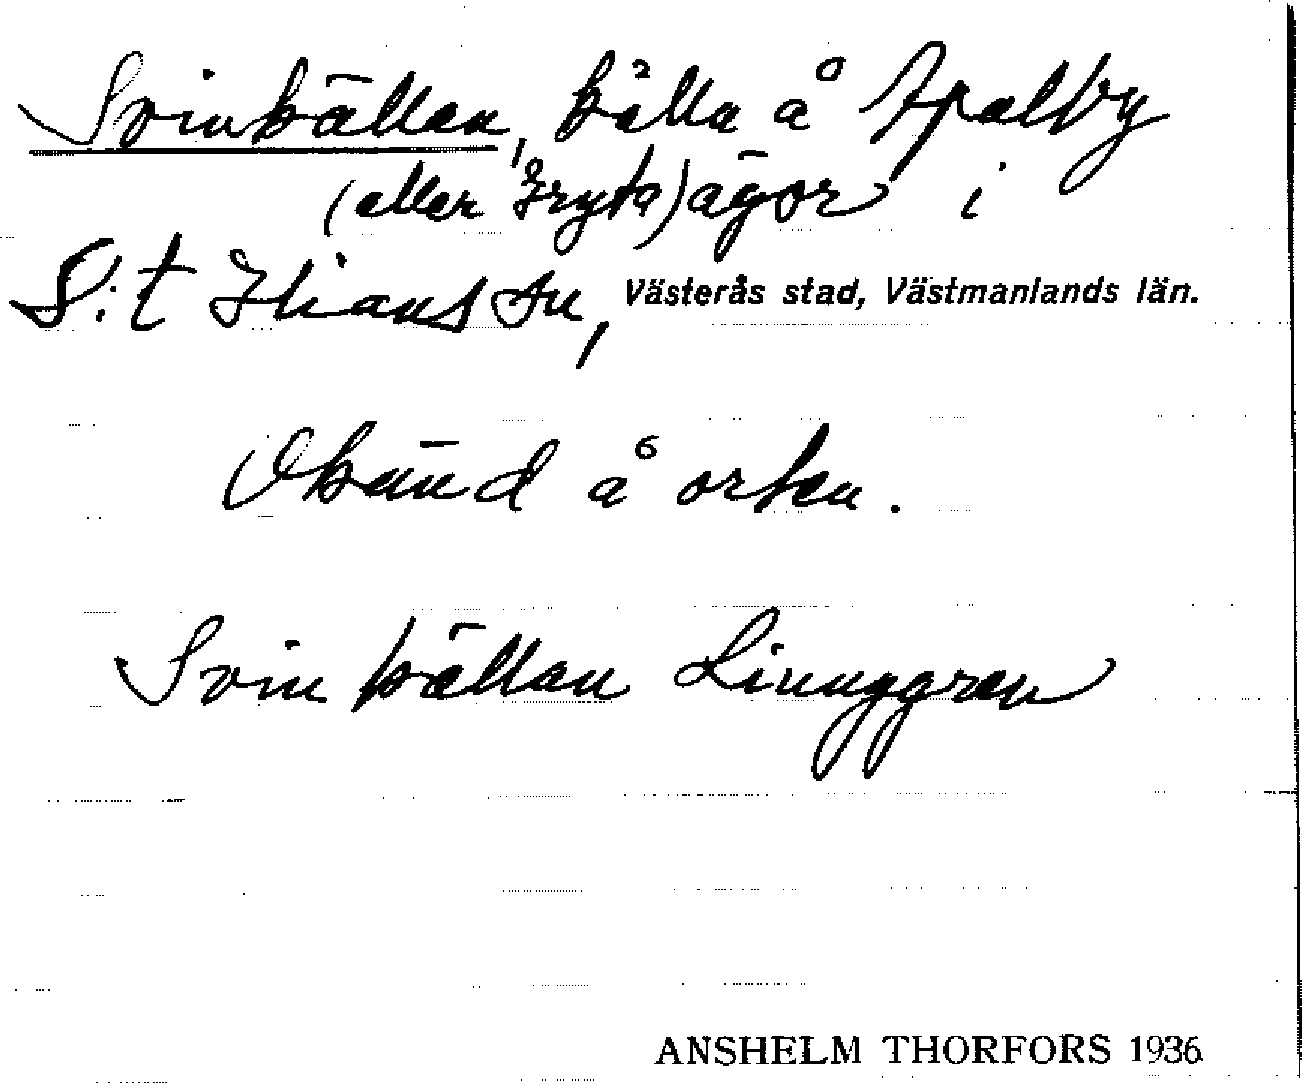 Svinkällan, källa å Apalby
(eller Gryta) ägor i
S:t Ilians sn, Västerås stad, Västmanlands län.
Okänd å orten.
Svinkällan Linnggren
ANSHELM THORFORS 1936